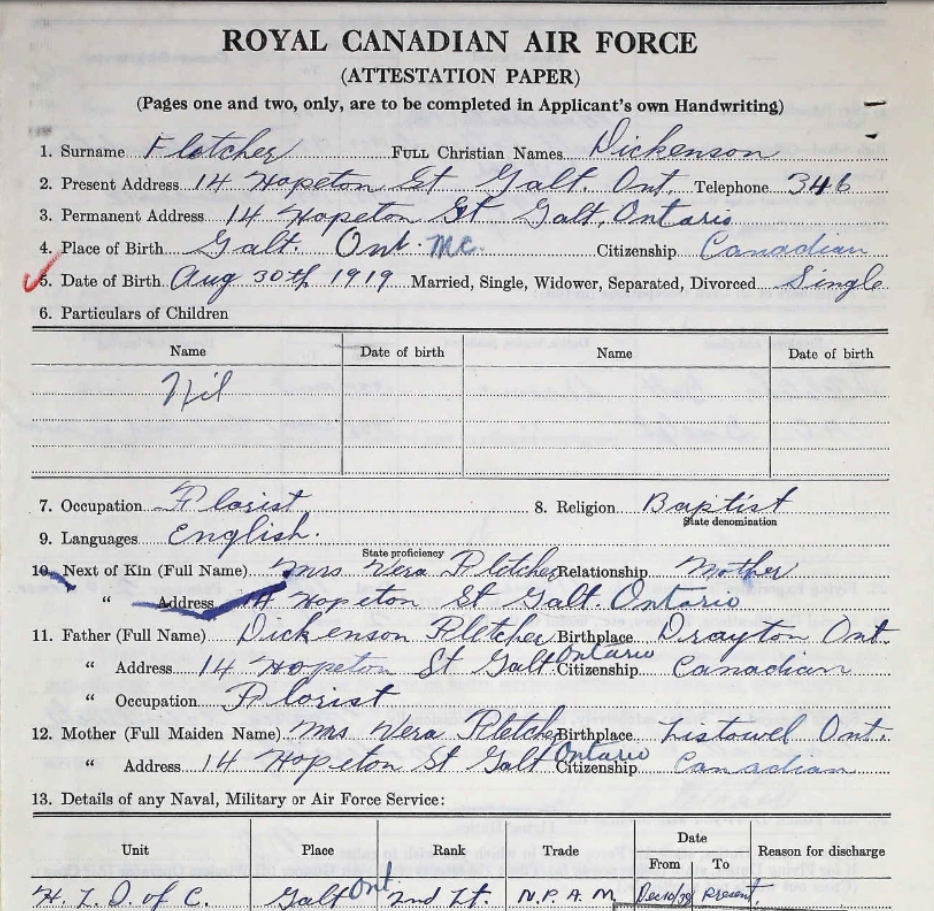 ROYAL CANADIAN AIR FORCE
(ATTESTATION PAPER)
(Pages one and two, only, are to be completed in Applicant's own Handwriting)
1. Surname Fletcher FULL Christian Names Dickenson
2. Present Address 14 Hopeton St Galt. Ont. Telephone 346
3. Permanent Address 14 Hopeton St Galt, Ontario
4. Place of Birth Galt. Ont. MC. Citizenship Canadian
5. Date of Birth Aug 30th 1919 Married, Single, Widower, Separated, Divorced Single
6. Particulars of Children
Name Date of birth Name Date of birth
Nil
7. Occupation Florist 8. Religion Baptist
State denomination
9. Languages English.
State proficiency
10. Next of Kin (Full Name) Mrs Vera Fletcher Relationship Mother
" Address 14 Hopeton St Galt. Ontario
11. Father (Full Name) Dickenson Fletcher Birthplace Drayton Ont.
" Address 14 Hopeton St Galt Ontario Citizenship Canadian
" Occupation Florist
12. Mother (Full Maiden Name) Mrs Vera Fletcher Birthplace Listowel Ont.
" Address 14 Hopeton St Galt Ontario Citizenship Canadian
13. Details of any Naval, Military or Air Force Service:
Unit Place Rank Trade Date From To Reason for discharge
H. L. I. of C. Galt Ont 2nd Lt. N.P.A.M. Dec10/39 Present.